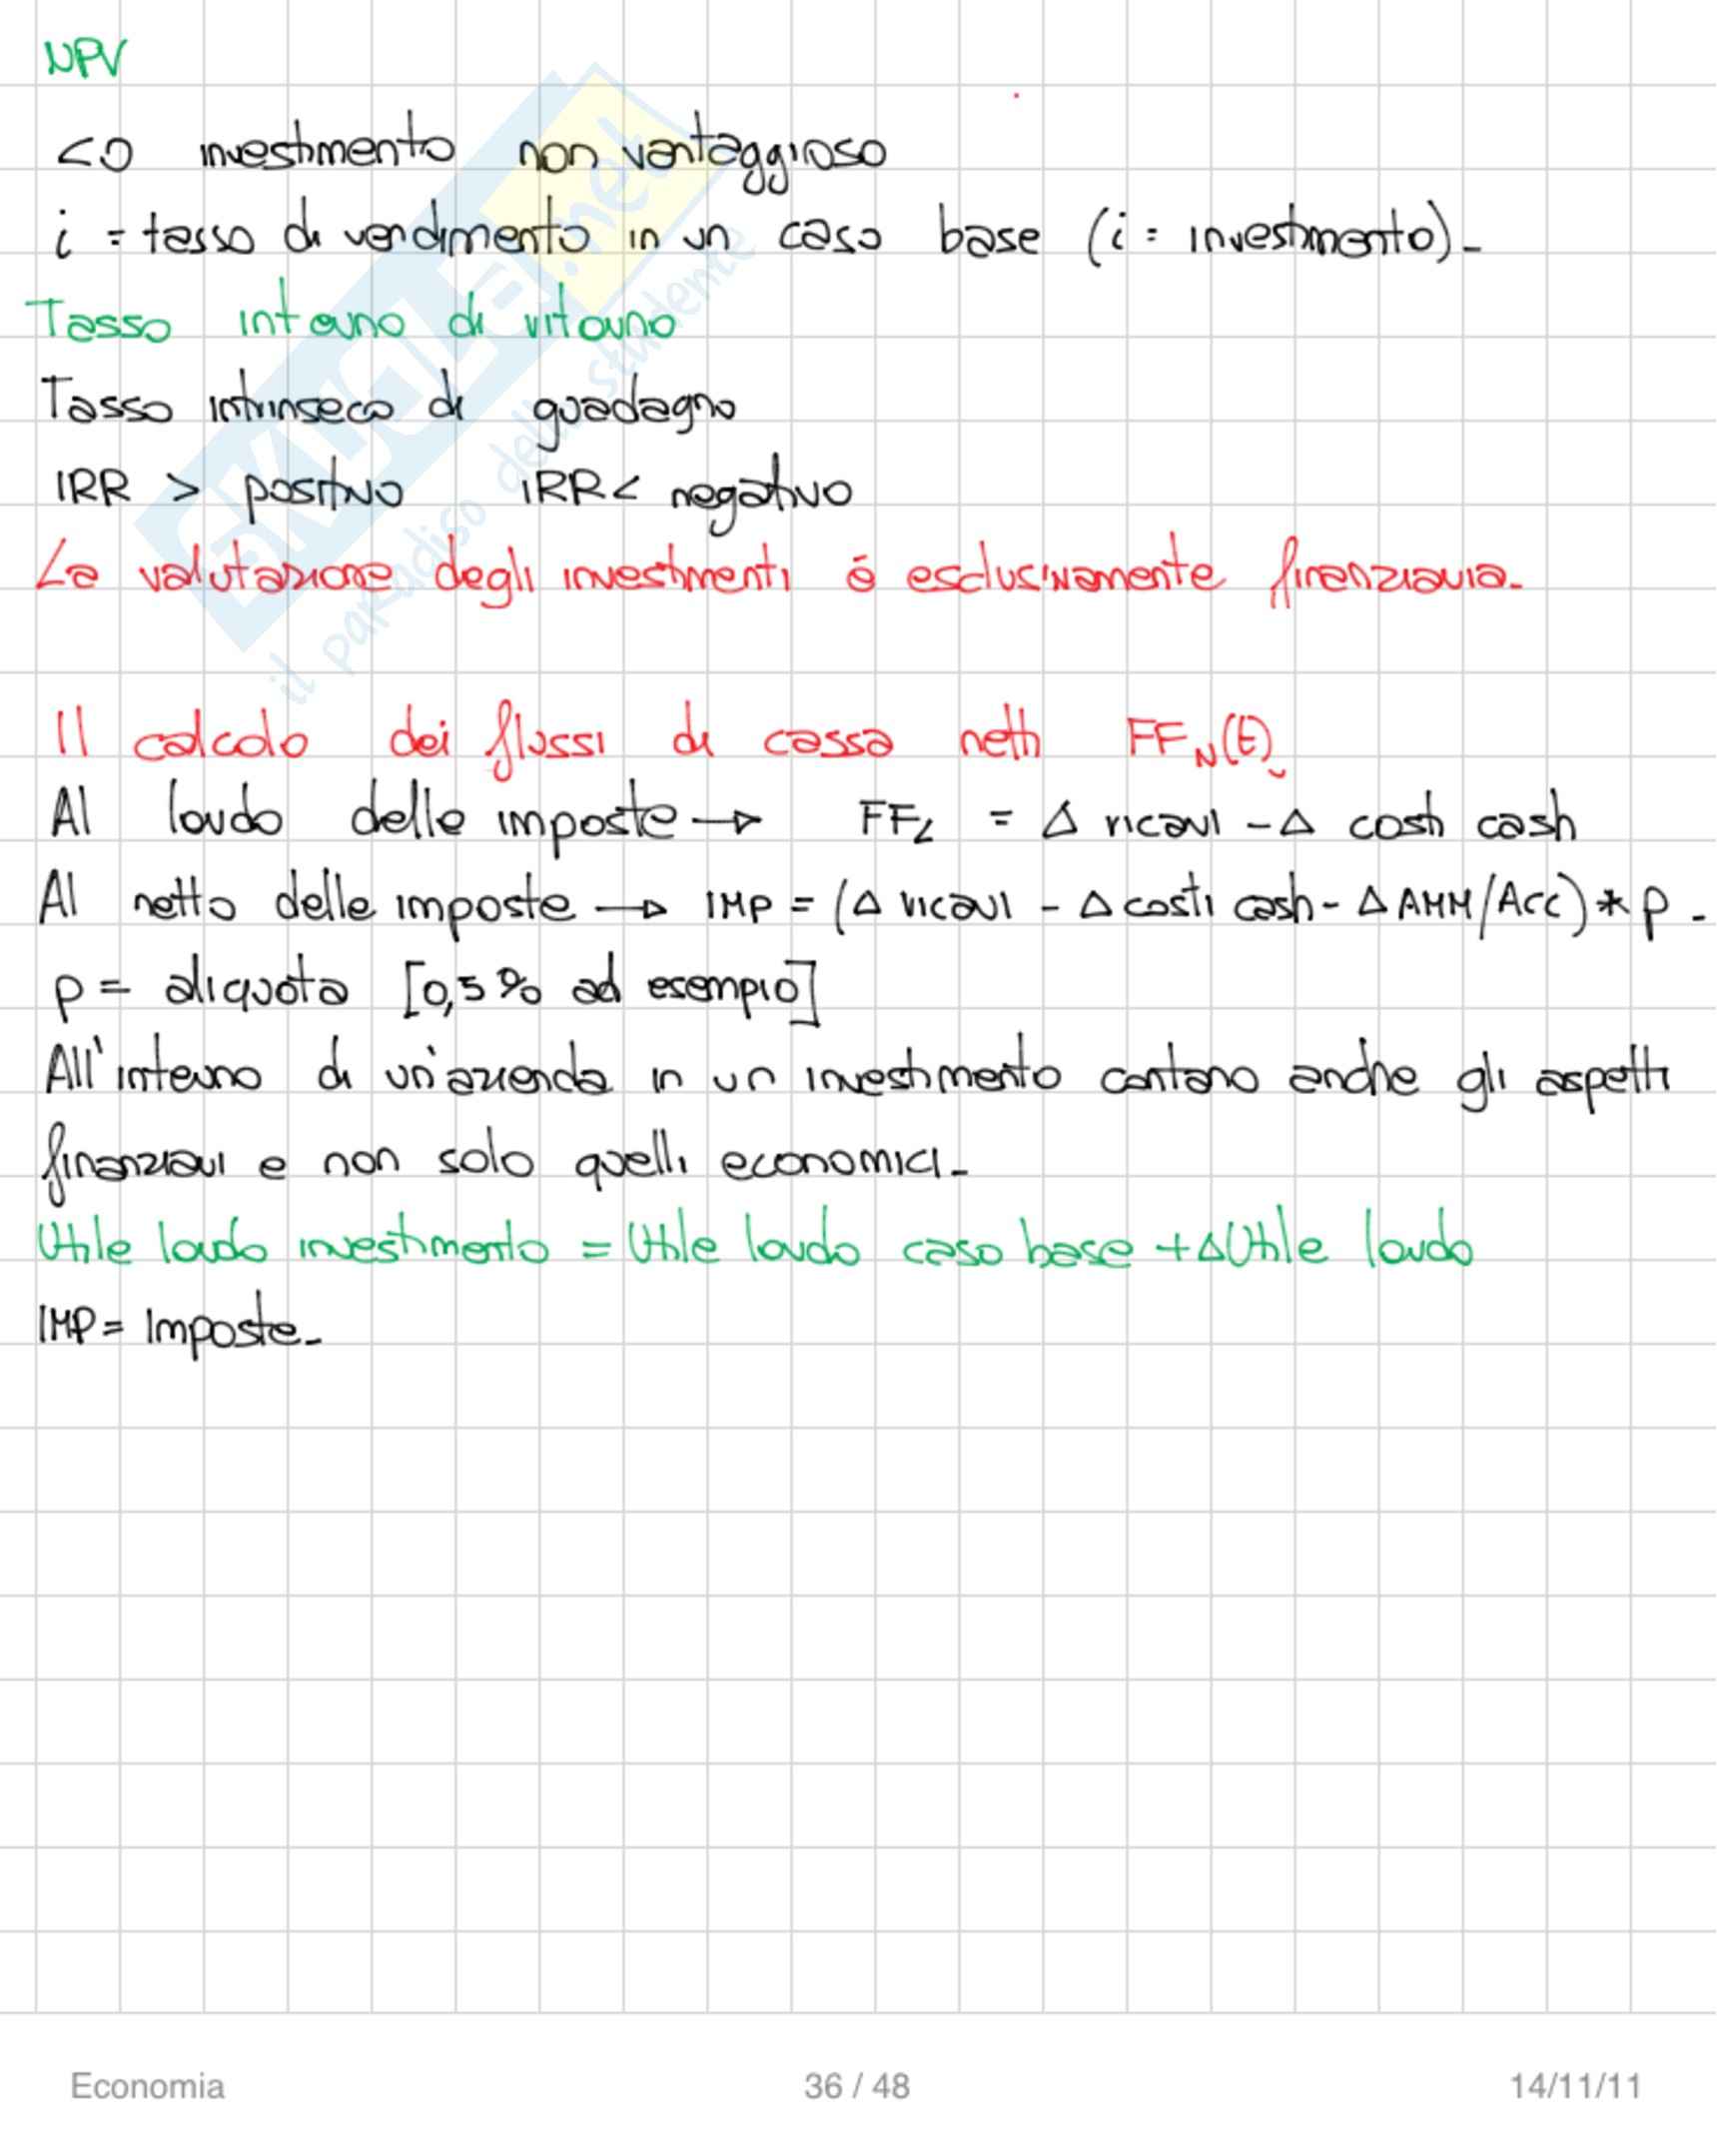 NPV
<0 investimento non vantaggioso
i = tasso di rendimento in un caso base (i = investimento).
Tasso interno di ritorno
Tasso intrinseco di guadagno
IRR > positivo IRR < negativo
La valutazione degli investimenti è esclusivamente finanziaria.
Il calcolo dei flussi di cassa netti FFN(t).
Al lordo delle imposte → FFL = Δ ricavi - Δ costi cash
Al netto delle imposte → IMP = (Δ ricavi - Δ costi cash - Δ AMM/Acc) * p.
p = aliquota [0,5% ad esempio]
All'interno di un'azienda in un investimento contano anche gli aspetti
finanziari e non solo quelli economici.
Utile lordo investimento = Utile lordo caso base + ΔUtile lordo
IMP = Imposte.
SKUOLA.net
il paradiso dello studente
Economia 36 / 48 14/11/11